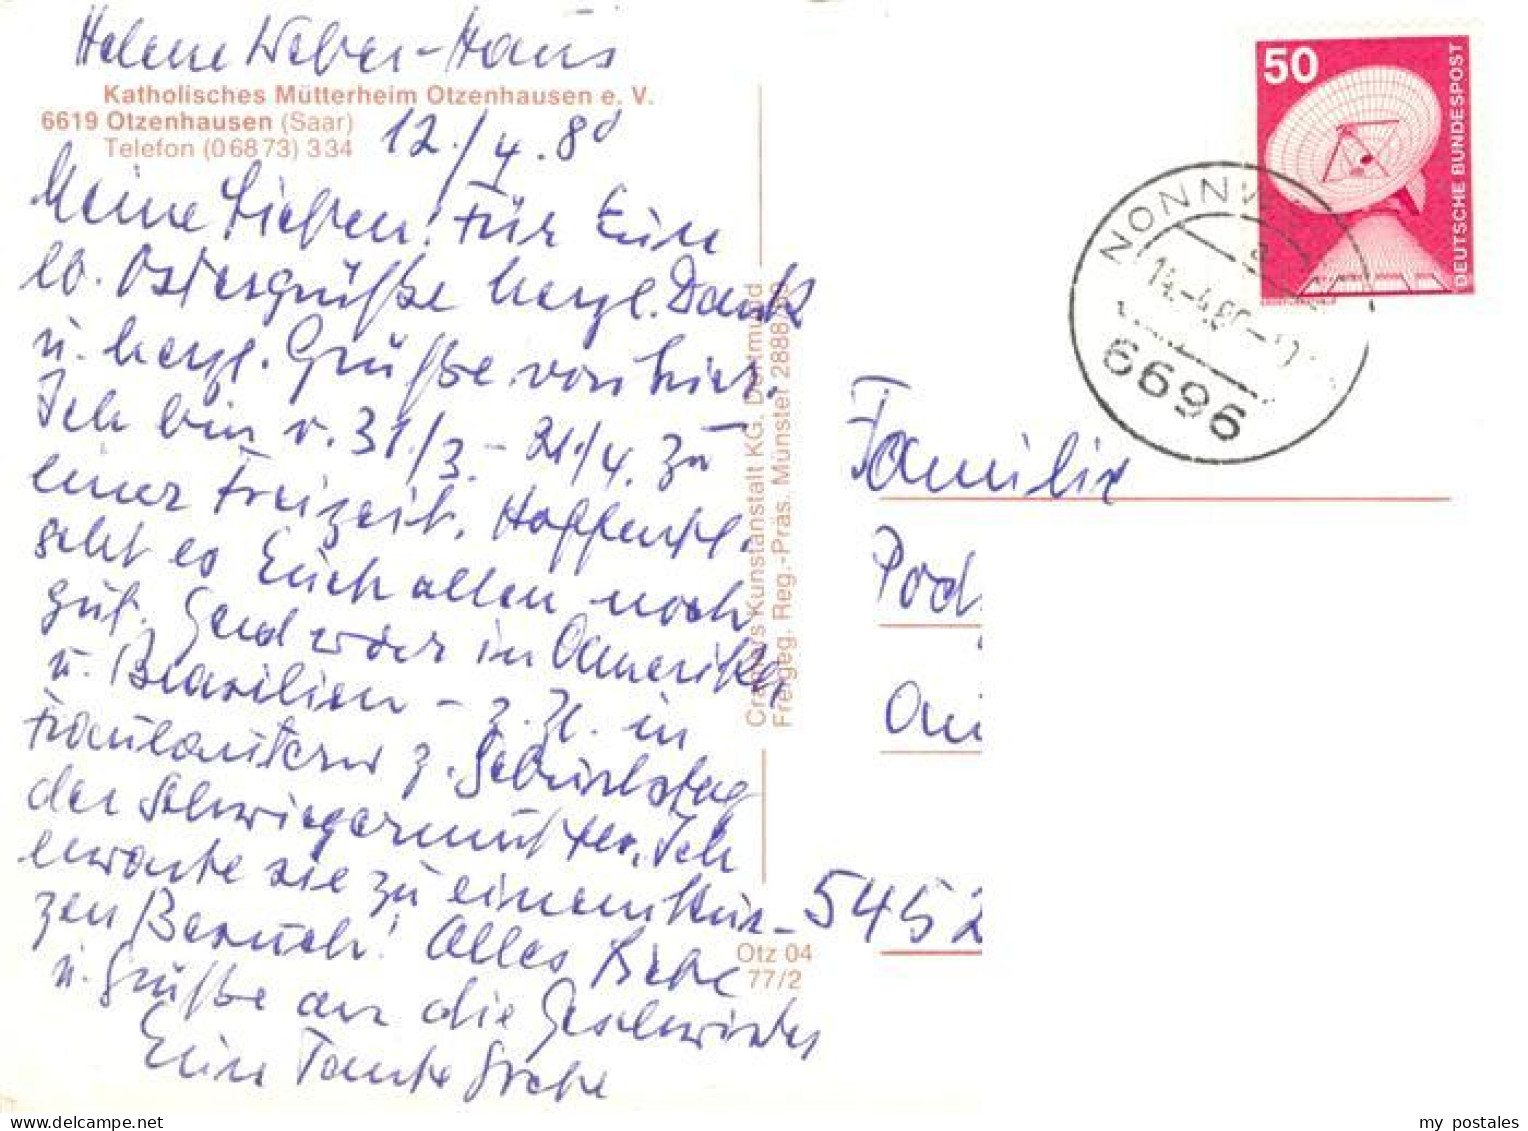 Helene Weber-Haus
Katholisches Mütterheim Otzenhausen e. V.
6619 Otzenhausen (Saar)
Telefon (06873) 334
12./4.80
Meine Lieben! Für Eure
lb. Ostergrüße herzl. Dank
u. herzl. Grüße von hier.
Ich bin v. 31./3. - 21./4. zu
einer Freizeit. Hoffentl.
geht es Euch allen noch
gut. Gerd war in Amerika
u. Brasilien - z. Zt. in
Kaiserslautern z. Geburtstag
der Schwiegermutter. Ich
erwarte sie zu einem kur-
zen Besuch! Alles Liebe
u. Grüße an die Geschwister
Eure Tante Grete
Cramers Kunstanstalt KG, Dortmund
Freigeg. Reg.-Präs. Münster 2888
Otz 04
77/2
50
DEUTSCHE BUNDESPOST
NONNW
a
14.-4.80
6696
Familie
5452
my postales